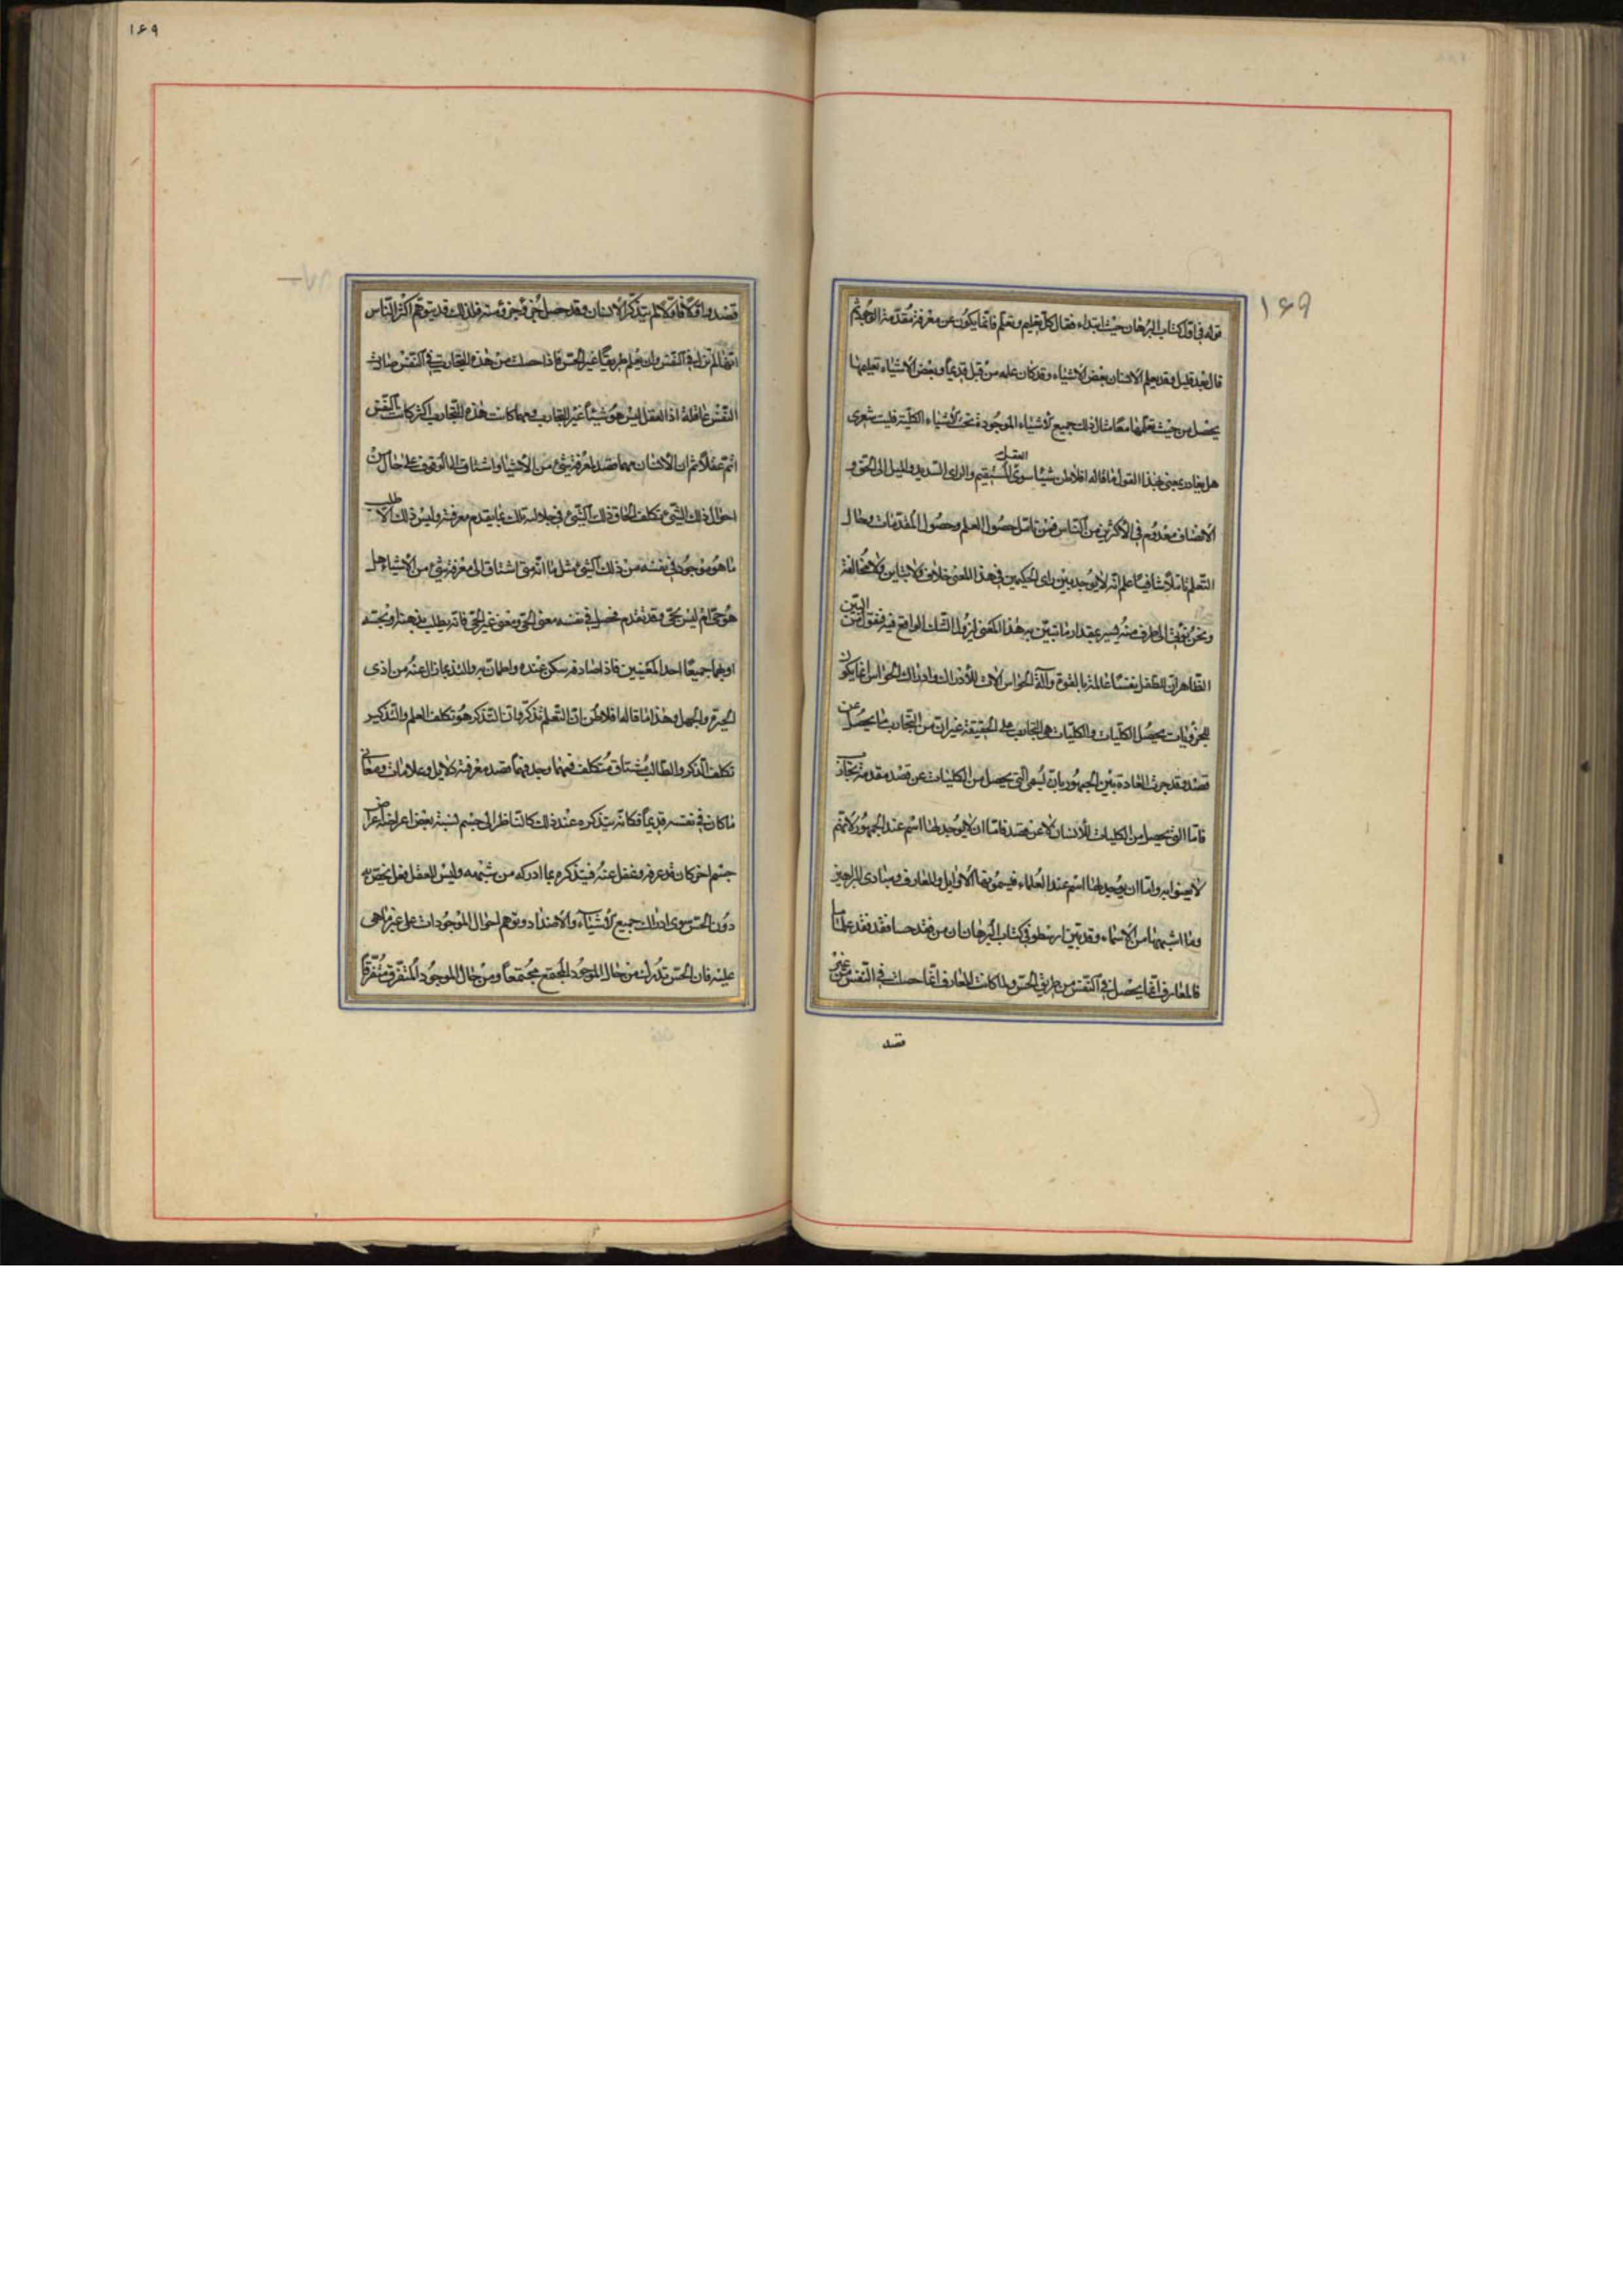 ۱۶۹
قوله فی اوّل کتاب البرهان حیث ابتداء فقال کلّ تعلیم و تعلّم فانّما یکون عن معرفة متقدّمة الوجود ثمّ
قال بعد قلیل و قد یعلم الانسان بعض الاشیاء و قد کان علمه من قبل قدیماً و بعض الاشیاء تعلیمها
یحصل من حیث تعلّمها معاً مثال ذلک جمیع الاشیاء الموجودة تحت الاشیاء الکلیّة فلیت شعری
هل یغادر معنی هذا القول ما قاله افلاطن شیئا سوی العقل المستقیم والرای السدید والمیل الی الحق و
الانصاف معدوم فی الاکثرین من النّاس فمن تامّل حصول العلم وحصول المقدّمات وحال
التعلم تاملاً شافیاً علم انّه لا یوجد بین رای الحکیمین فی هذا المعنی خلاف ولا تباین ولا مخالفة
ونحن نومئ الی طرف منه یسیر بمقدار ما تبیّن به هذا المعنی لیزول الشک الواقع فیه فنقول من البیّن
الظاهر انّ للطفل نفساً عالمة بالقوة وآلة الحواس الات للادراک وادراک الحواس انما یکون
للجزویات یحصل الکلّیات والکلیّات هی التجارب علی الحقیقة غیر انّ من التجارب ما یحصل عن
قصد وقد جرت العادة بین الجمهور بان لیسمی التی یحصل من الکلیّات عن قصد مقدمة تجارب
فامّا التی یحصل من الکلیات للانسان لا عن قصد فامّا ان لا یوجد لها اسم عند الجمهور لانّهم
لا یعنوا به وامّا ان یوجد لها اسم عند العلماء فیسمّونها الاوایل والمعارف ومبادی البراهین
وما اشبهها من الاسماء وقد بیّن ارسطو فی کتاب البرهان ان من فقد حسا فقد فقد علماً
فالمعارف انّما یحصل فی النّفس من طریق الحس ولما کانت المعارف انّما حصلت فی النّفس من غیر
قصد
۱۶۹
قصد واوّلا فاوّلا لم یتذکّر الانسان وقد حصل جزء فجزء منه فلذلک قد یتوهّم اکثر النّاس
انّها لم تزل فی النّفس وان یعلم طریقاً غیر الحسّ فاذا حصلت من هذه التجارب فی النّفس صارت
النّفس عاقلة اذ العقل لیس هو شیئاً غیر التجارب ومهما کانت هذه التجارب اکثر کانت النّفس
اتمّ عقلاً ثم ان الانسان مهما قصد لمعرفة شیء من الاشیاء واشتاق الی الوقوف علی حال من
احوال ذلک الشیء تکلف الحاق ذلک الشیء فی حاله تلک بما یقدم معرفته ولیس ذلک الا طلب
ما هو موجود فی نفسه من ذلک الشیء مثل ما انّه متی اشتاق الی معرفة شیء من الاشیاء هل
هو حیّ ام لیس بحیّ وقد تقدم فحصل فی نفسه معنی الحیّ ومعنی غیر الحیّ فانّه یطلب بذهنه او بحسّه
او بهما جمیعاً احد المعنیین فاذا صادفه سکن عنده واطمانّ به والتذ بما زال عنه من اذی
الحیرة والجهل وهذا ما قاله افلاطن انّ التعلم تذکّر وانّ التذکر هو تکلف العلم والتذکیر
تکلف الذکر والطالب مشتاق متکلف فمهما وجد فیما قصد معرفته دلایل وعلامات ومعانی
ما کان فی نفسه قدیماً فکانّه یتذکره عند ذلک کالنّاظر الی جسم نسبة بعض اعراضه اعراض
جسم اخر کان قد عرفه وغفل عنه فیتذکره بما ادرکه من شبهه ولیس للعقل فعل یختصّ به
دون الحس سوی ادراک جمیع الاشیاء والاضداد وتوهم احوال الموجودات علی غیر ما هی
علیه فان الحس تدرک من حال الموجود المجتمع مجتمعاً ومن حال الموجود المتفرّق متفرّقاً